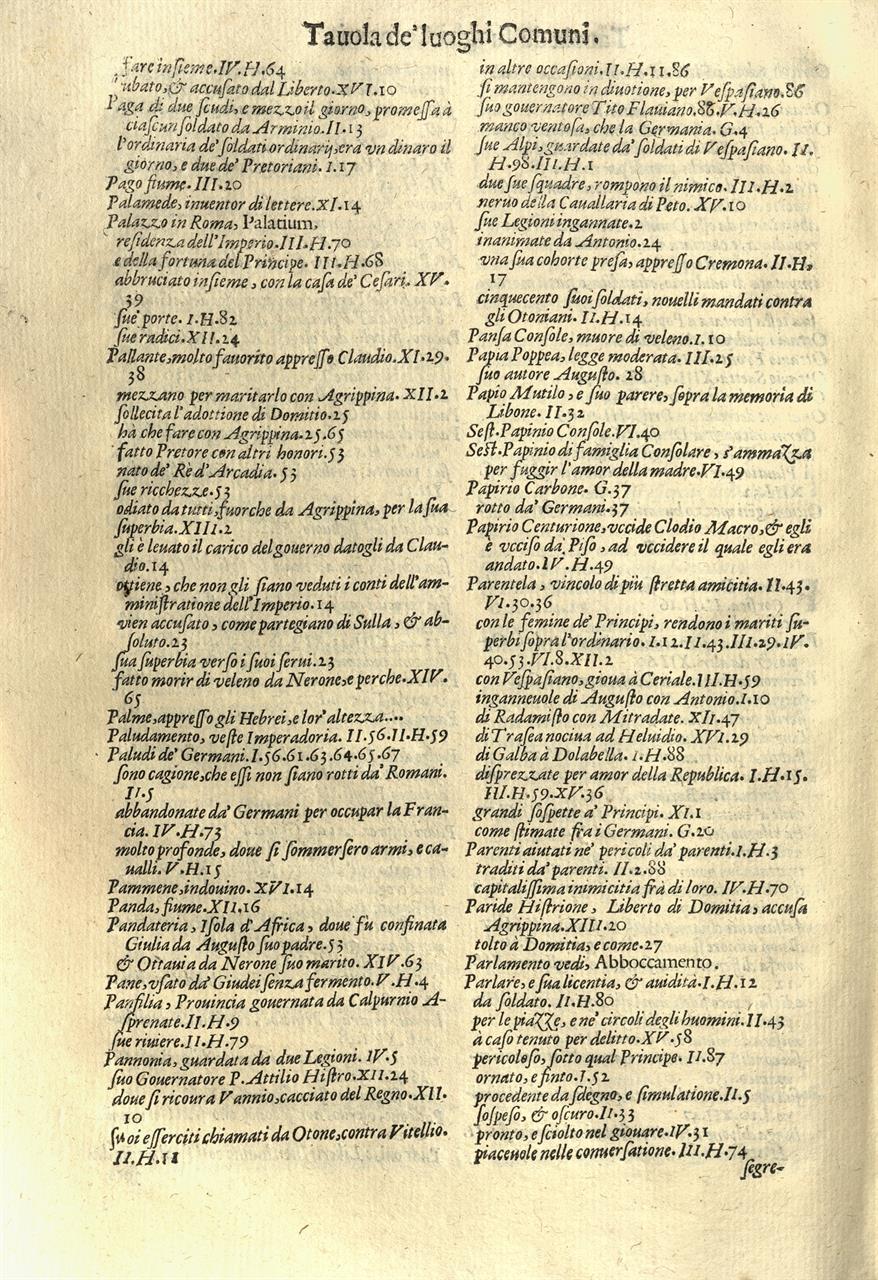 Tauola de' luoghi Comuni.
fare inſieme.IV.H.64
ubato, & accuſato dal Liberto.XVI.10
Paga di due ſcudi, e mezzo il giorno, promeſſa à
ciaſcun ſoldato da Arminio.II.13
l'ordinaria de' ſoldati ordinarij, era vn dinaro il
giorno, e due de' Pretoriani. I.17
Pago fiume. III.20
Palamede, inuentor di lettere.XI.14
Palazzo in Roma, Palatium,
reſidenza dell'Imperio.III.H.70
e della fortuna del Principe. III.H.68
abbruciato inſieme, con la caſa de' Ceſari. XV.
39
ſue porte. I.H.82
ſue radici.XII.24
Pallante, molto fauorito appreſſo Claudio.XI.29.
38
mezzano per maritarlo con Agrippina. XII.2
ſollecita l'adottione di Domitio.25
hà che fare con Agrippina.25.65
fatto Pretore con altri honori.53
nato de' Rè d'Arcadia.53
ſue ricchezze.53
odiato da tutti, fuorche da Agrippina, per la ſua
ſuperbia.XIII.2
gli è leuato il carico del gouerno datogli da Clau-
dio.14
ottiene, che non gli ſiano veduti i conti dell'am-
miniſtratione dell'Imperio.14
vien accuſato, come partegiano di Sulla, & ab-
ſoluto.23
ſua ſuperbia verſo i ſuoi ſerui.23
fatto morir di veleno da Nerone, e perche. XIV.
65
Palme, appreſſo gli Hebrei, e lor' altezza....
Paludamento, veſte Imperadoria. II.56.II.H.59
Paludi de' Germani.I.56.61.63.64.65.67
ſono cagione, che eſſi non ſiano rotti da' Romani.
II.5
abbandonate da' Germani per occupar la Fran-
cia. IV.H.73
molto profonde, doue ſi ſommerſero armi, e ca-
ualli. V.H.15
Pammene, indouino. XVI.14
Panda, fiume.XII.16
Pandateria, Iſola d'Africa, doue fù confinata
Giulia da Auguſto ſuo padre.53
& Ottauia da Nerone ſuo marito. XIV.63
Pane, vſato da' Giudei ſenza fermento.V.H.4
Panfilia, Prouincia gouernata da Calpurnio A-
ſprenate.II.H.9
ſue riuiere.II.H.79
Pannonia, guardata da due Legioni. IV.5
ſuo Gouernatore P. Attilio Hiſtro.XII.24
doue ſi ricoura Vannio, cacciato del Regno. XII.
10
ſuoi eſſerciti chiamati da Otone, contra Vitellio.
II.H.11
in altre occaſioni.II.H.11.86
ſi mantengono in diuotione, per Veſpaſiano.86
ſuo gouernatore Tito Flauiano.88.V.H.26
manco ventoſa, che la Germania. G.4
ſue Alpi, guardate da' ſoldati di Veſpaſiano. II.
H.98.III.H.1
due ſue ſquadre, rompono il nimico. III.H.2
neruo della Cauallaria di Peto. XV.10
ſue Legioni ingannate.2
inanimate da Antonio.24
vna ſua cohorte preſa, appreſſo Cremona. II.H.
17
cinquecento ſuoi ſoldati, nouelli mandati contra
gli Otoniani. II.H.14
Panſa Conſole, muore di veleno.I.10
Papia Poppea, legge moderata. III.25
ſuo autore Auguſto. 28
Papio Mutilo, e ſuo parere, ſopra la memoria di
Libone. II.32
Seſt.Papinio Conſole.VI.40
Seſt.Papinio di famiglia Conſolare, s'ammazza
per fuggir l'amor della madre.VI.49
Papirio Carbone. G.37
rotto da' Germani.37
Papirio Centurione, vccide Clodio Macro, & egli
è vcciſo da Piſo, ad vccidere il quale egli era
andato.IV.H.49
Parentela, vincolo di più ſtretta amicitia. II.43.
VI.30.36
con le femine de' Principi, rendono i mariti ſu-
perbi ſopra l'ordinario. I.12.II.43.III.29.IV.
40.53.VI.8.XII.2
con Veſpaſiano, gioua à Ceriale.III.H.59
inganneuole di Auguſto con Antonio.I.10
di Radamiſto con Mitradate. XII.47
di Traſea nociua ad Heluidio. XVI.29
di Galba à Dolabella. I.H.88
diſprezzate per amor della Republica. I.H.15.
III.H.59.XV.36
grandi ſoſpette a' Principi. XI.1
come ſtimate frà i Germani. G.20
Parenti aiutati ne' pericoli da' parenti.I.H.3
traditi da' parenti. II.2.88
capitaliſſima inimicitia frà di loro. IV.H.70
Paride Hiſtrione, Liberto di Domitia, accuſa
Agrippina.XIII.20
tolto à Domitia, e come.27
Parlamento vedi, Abboccamento.
Parlare, e ſua licentia, & auidità.I.H.12
da ſoldato. II.H.80
per le piazze, e ne' circoli degli huomini.II.43
à caſo tenuto per delitto.XV.58
pericoloſo, ſotto qual Principe. II.87
ornato, e finto.I.52
procedente da ſdegno, e ſimulatione.II.5
ſoſpeſo, & oſcuro.II.33
pronto, e ſciolto nel giouare.IV.31
piaceuole nelle conuerſatione. III.H.74
ſegre-